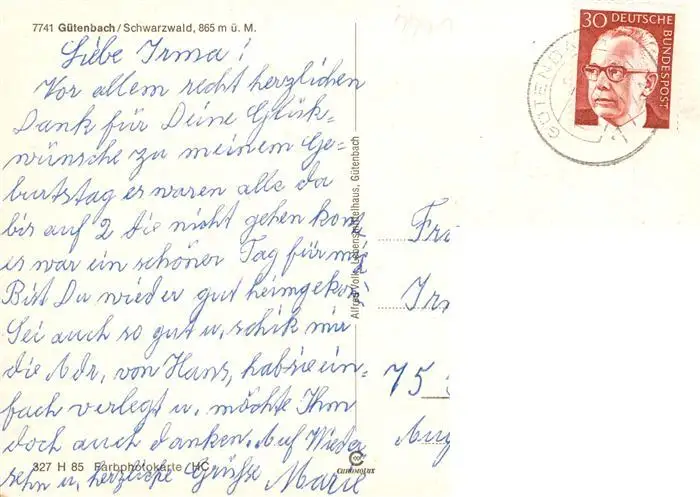 7741 Gütenbach/Schwarzwald, 865 m ü. M.
Liebe Irma!
Vor allem recht herzlichen
Dank für Deine Glück-
wünsche zu meinem Ge-
burtstag es waren alle da
bis auf 2 die nicht gehen kon
es war ein schöner Tag für mi
Bist Du wieder gut heimgekom
Sei auch so gut u. schik mir
die Adr, von Hans, hab sie ein-
fach verlegt u, möchte Ihm
doch auch danken. Auf Wieder
sehn u, herzliche Grüsse Marie
327 H 85 Farbphotokarte/HC
Alfred Volk, Lebensmittelhaus, Gütenbach
CHROMOLUX
30 DEUTSCHE BUNDESPOST
GÜTENBA
Fr
Irm
75